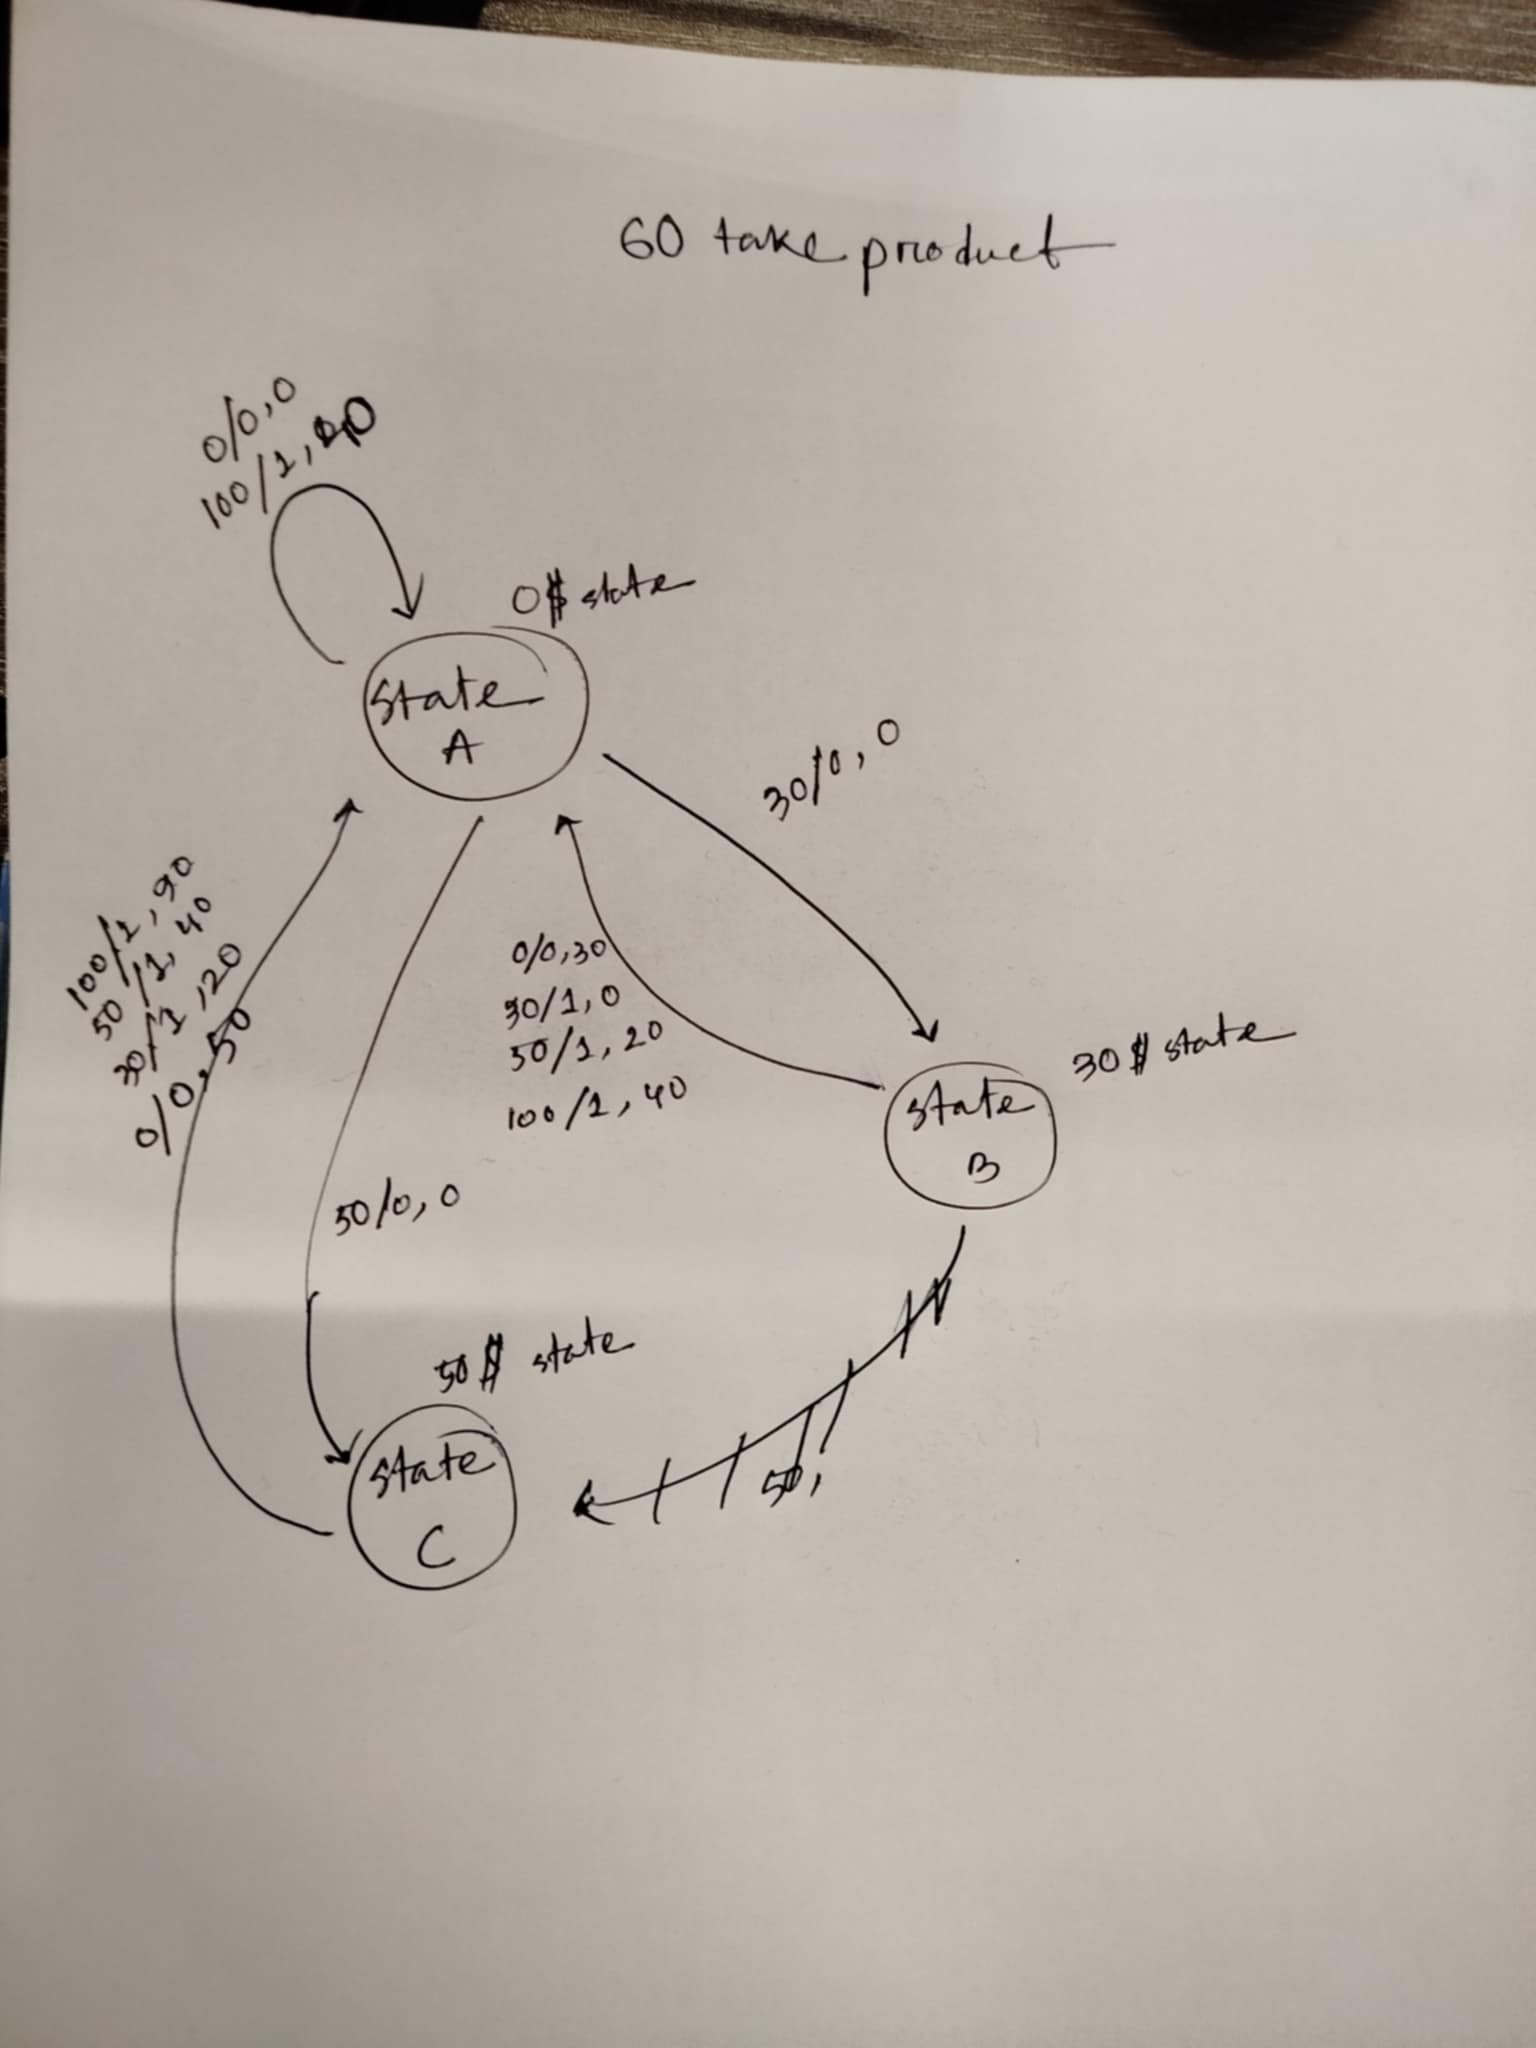 60 take product
0/0,0
100/1,40
0$ state
State
A
30/0,0
100/1,90
50/1,40
30/1,20
0/0,50
0/0,30
30/1,0
50/1,20
100/1,40
30$ state
State
B
50/0,0
50$ state
State
C
50,